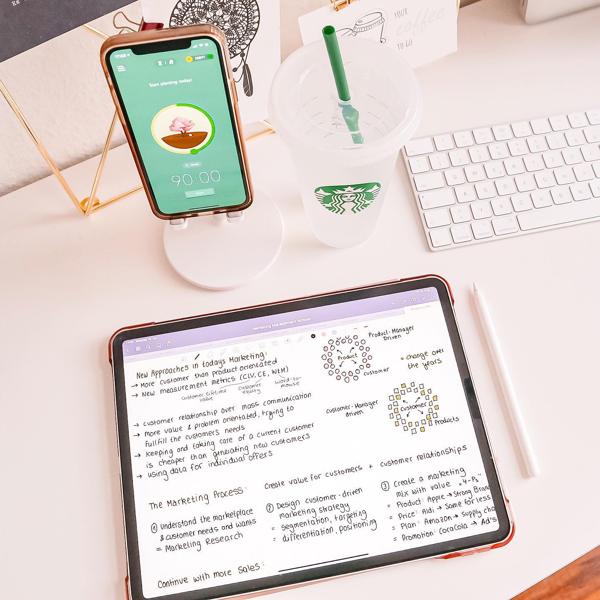 YOUR
coffee
TO GO
Start planting today!
90:00
New Approaches in todays Marketing:
→ More customer than product orientated
→ New measurement metrics (CLV, CE, WEM)
customer lifetime value
customer equity
word-to-mouse
→ customer relationship over mass communication
→ more value & problem orientated, trying to
fullfill the customers needs
→ keeping and taking care of a current customer
is cheaper than generating new customers
→ using data for individual offers
Product-Manager
Driven
Product
customer
change over
the years
customer-Manager
driven
customer
Products
The Marketing Process:
Create value for customers + customer relationships
① Understand the marketplace
& customer needs and wants
= Marketing Research
② Design customer-driven
marketing strategy
= segmentation, targeting
= differentiation, positioning
③ Create a marketing
mix with value "4-Ps"
= Product: Apple → Strong Brand
= Price: Aldi → Same for less
= Plan: Amazon → Supply cha
= Promotion: CocaCola → Ad's
Continue with more Sales: